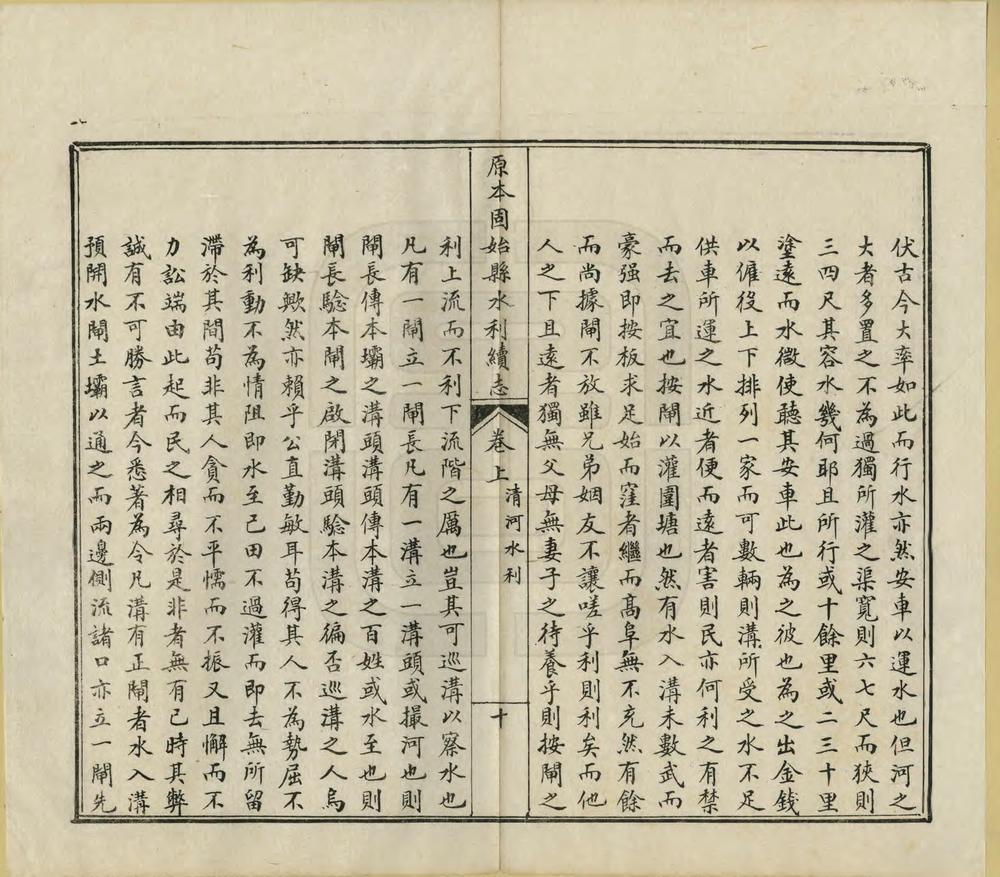 伏古今大率如此而行水亦然安車以運水也但河之
大者多置之不為過獨所灌之渠寬則六七尺而狹則
三四尺其容水幾何耶且所行或十餘里或二三十里
塗遠而水微使聽其安車此也為之彼也為之出金錢
以僱役上下排列一家而可數輛則溝所受之水不足
供車所運之水近者便而遠者害則民亦何利之有禁
而去之宜也按閘以灌圍塘也然有水入溝未數武而
豪强即按板求足始而窪者繼而高阜無不充然有餘
而尚據閘不放雖兄弟姻友不讓嗟乎利則利矣而他
人之下且遠者獨無父母無妻子之待養乎則按閘之
原本固始縣水利續志
卷上
清河水利
十
利上流而不利下流階之厲也豈其可巡溝以察水也
凡有一閘立一閘長凡有一溝立一溝頭或撮河也則
閘長傳本壩之溝頭溝頭傳本溝之百姓或水至也則
閘長驗本閘之啟閉溝頭驗本溝之徧否巡溝之人烏
可缺歟然亦賴乎公直勤敏耳苟得其人不為勢屈不
為利動不為情阻即水至己田不過灌而即去無所留
滯於其間苟非其人貪而不平懦而不振又且懈而不
力訟端由此起而民之相尋於是非者無有已時其弊
誠有不可勝言者今悉著為令凡溝有正閘者水入溝
預開水閘土壩以通之而兩邊側流諸口亦立一閘先